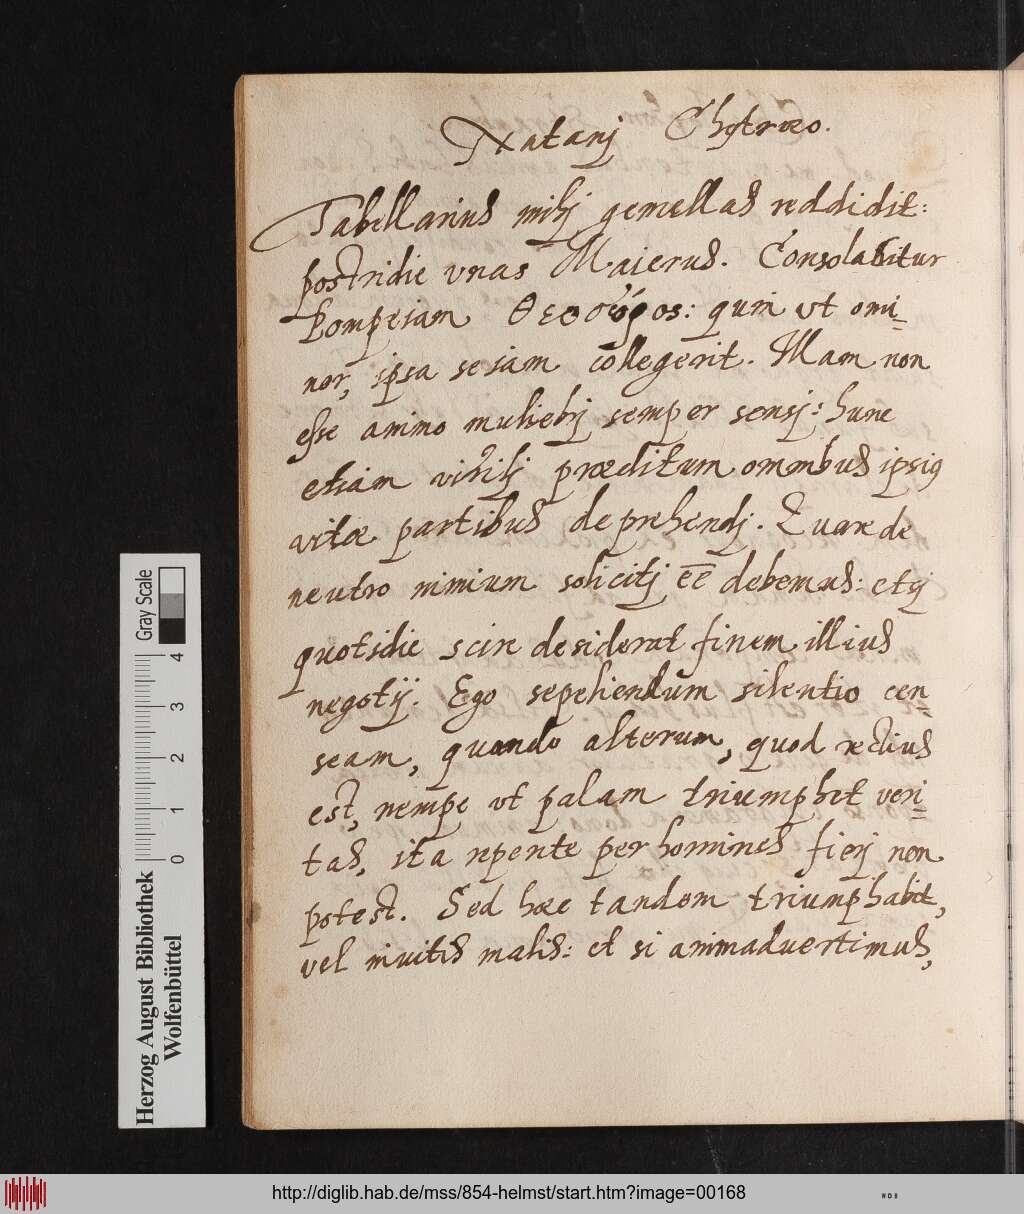 Natanj Chytraeo.
Tabellarius mihj gemellas reddidit:
postridie vnas Maierus. Consolabitur
Pompeiam Θεόδωρος: quin vt omi=
nor, ipsa se iam collegerit. Nam non
esse animo muliebrj semper sensj: hunc
etiam virilj praeditum omnibus ipsius
vitae partibus deprehendj. Quare de
neutro nimium solicitj ēē debemus: etsj
quotidie scire desiderat finem illius
negotij. Ego sepeliendum silentio cen=
seam, quando alterum, quod rectius
est, nempe vt palam triumphet veri=
tas, ita repente per homines fierj non
potest. Sed haec tandem triumphabit,
vel inuitis malis: et si animaduertimus,
Gray Scale
0 1 2 3 4
Herzog August Bibliothek
Wolfenbüttel
http://diglib.hab.de/mss/854-helmst/start.htm?image=00168